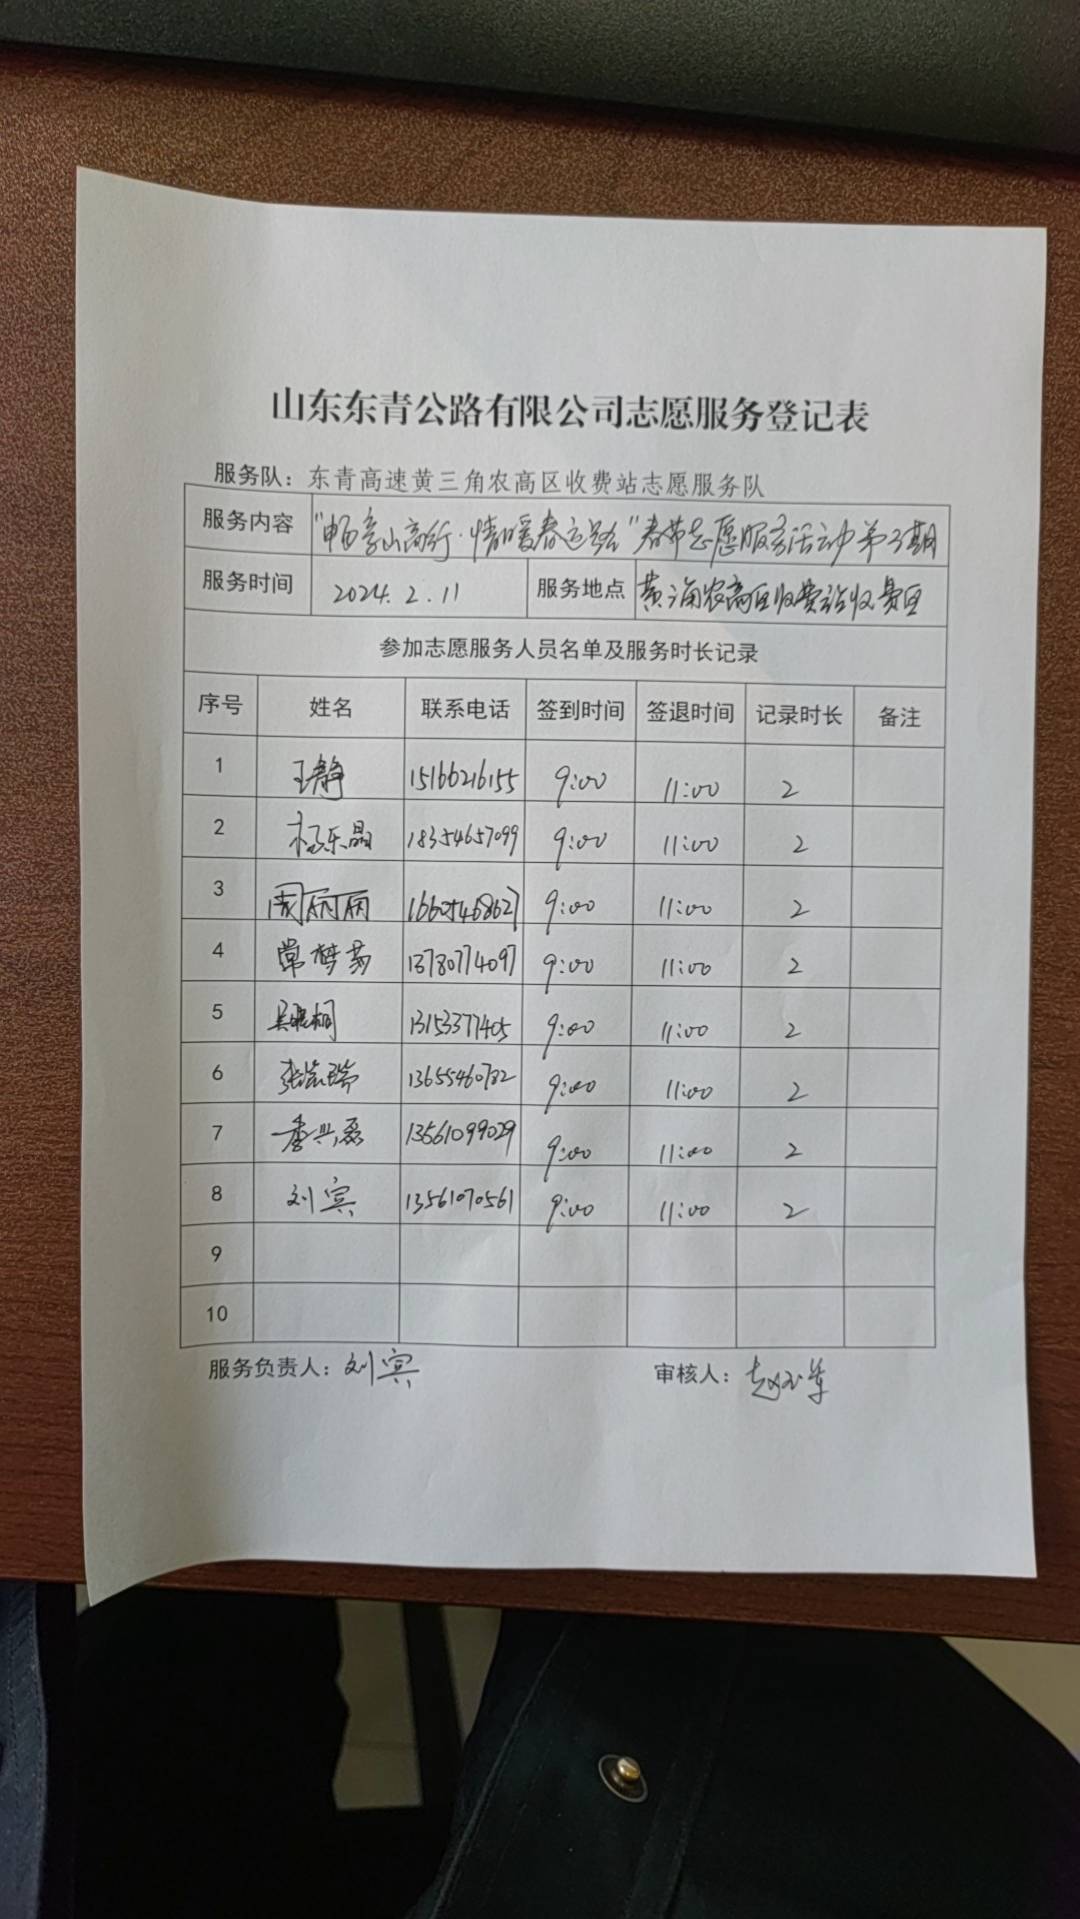 山东东青公路有限公司志愿服务登记表
服务队：东青高速黄三角农高区收费站志愿服务队
服务内容 "畅享山高行·情暖春运路"春节志愿服务活动第3期
服务时间 2024.2.11 服务地点 黄三角农高区收费站收费区
参加志愿服务人员名单及服务时长记录
序号 姓名 联系电话 签到时间 签退时间 记录时长 备注
1 王静 15166216155 9:00 11:00 2
2 杨乐晶 18354657099 9:00 11:00 2
3 周丽丽 16605468627 9:00 11:00 2
4 常梦茹 13780774097 9:00 11:00 2
5 吴晓桐 13153377405 9:00 11:00 2
6 13655460782 9:00 11:00 2
7 季兴磊 13561099029 9:00 11:00 2
8 刘宾 13561070561 9:00 11:00 2
9
10
服务负责人：刘宾 审核人：赵玉军